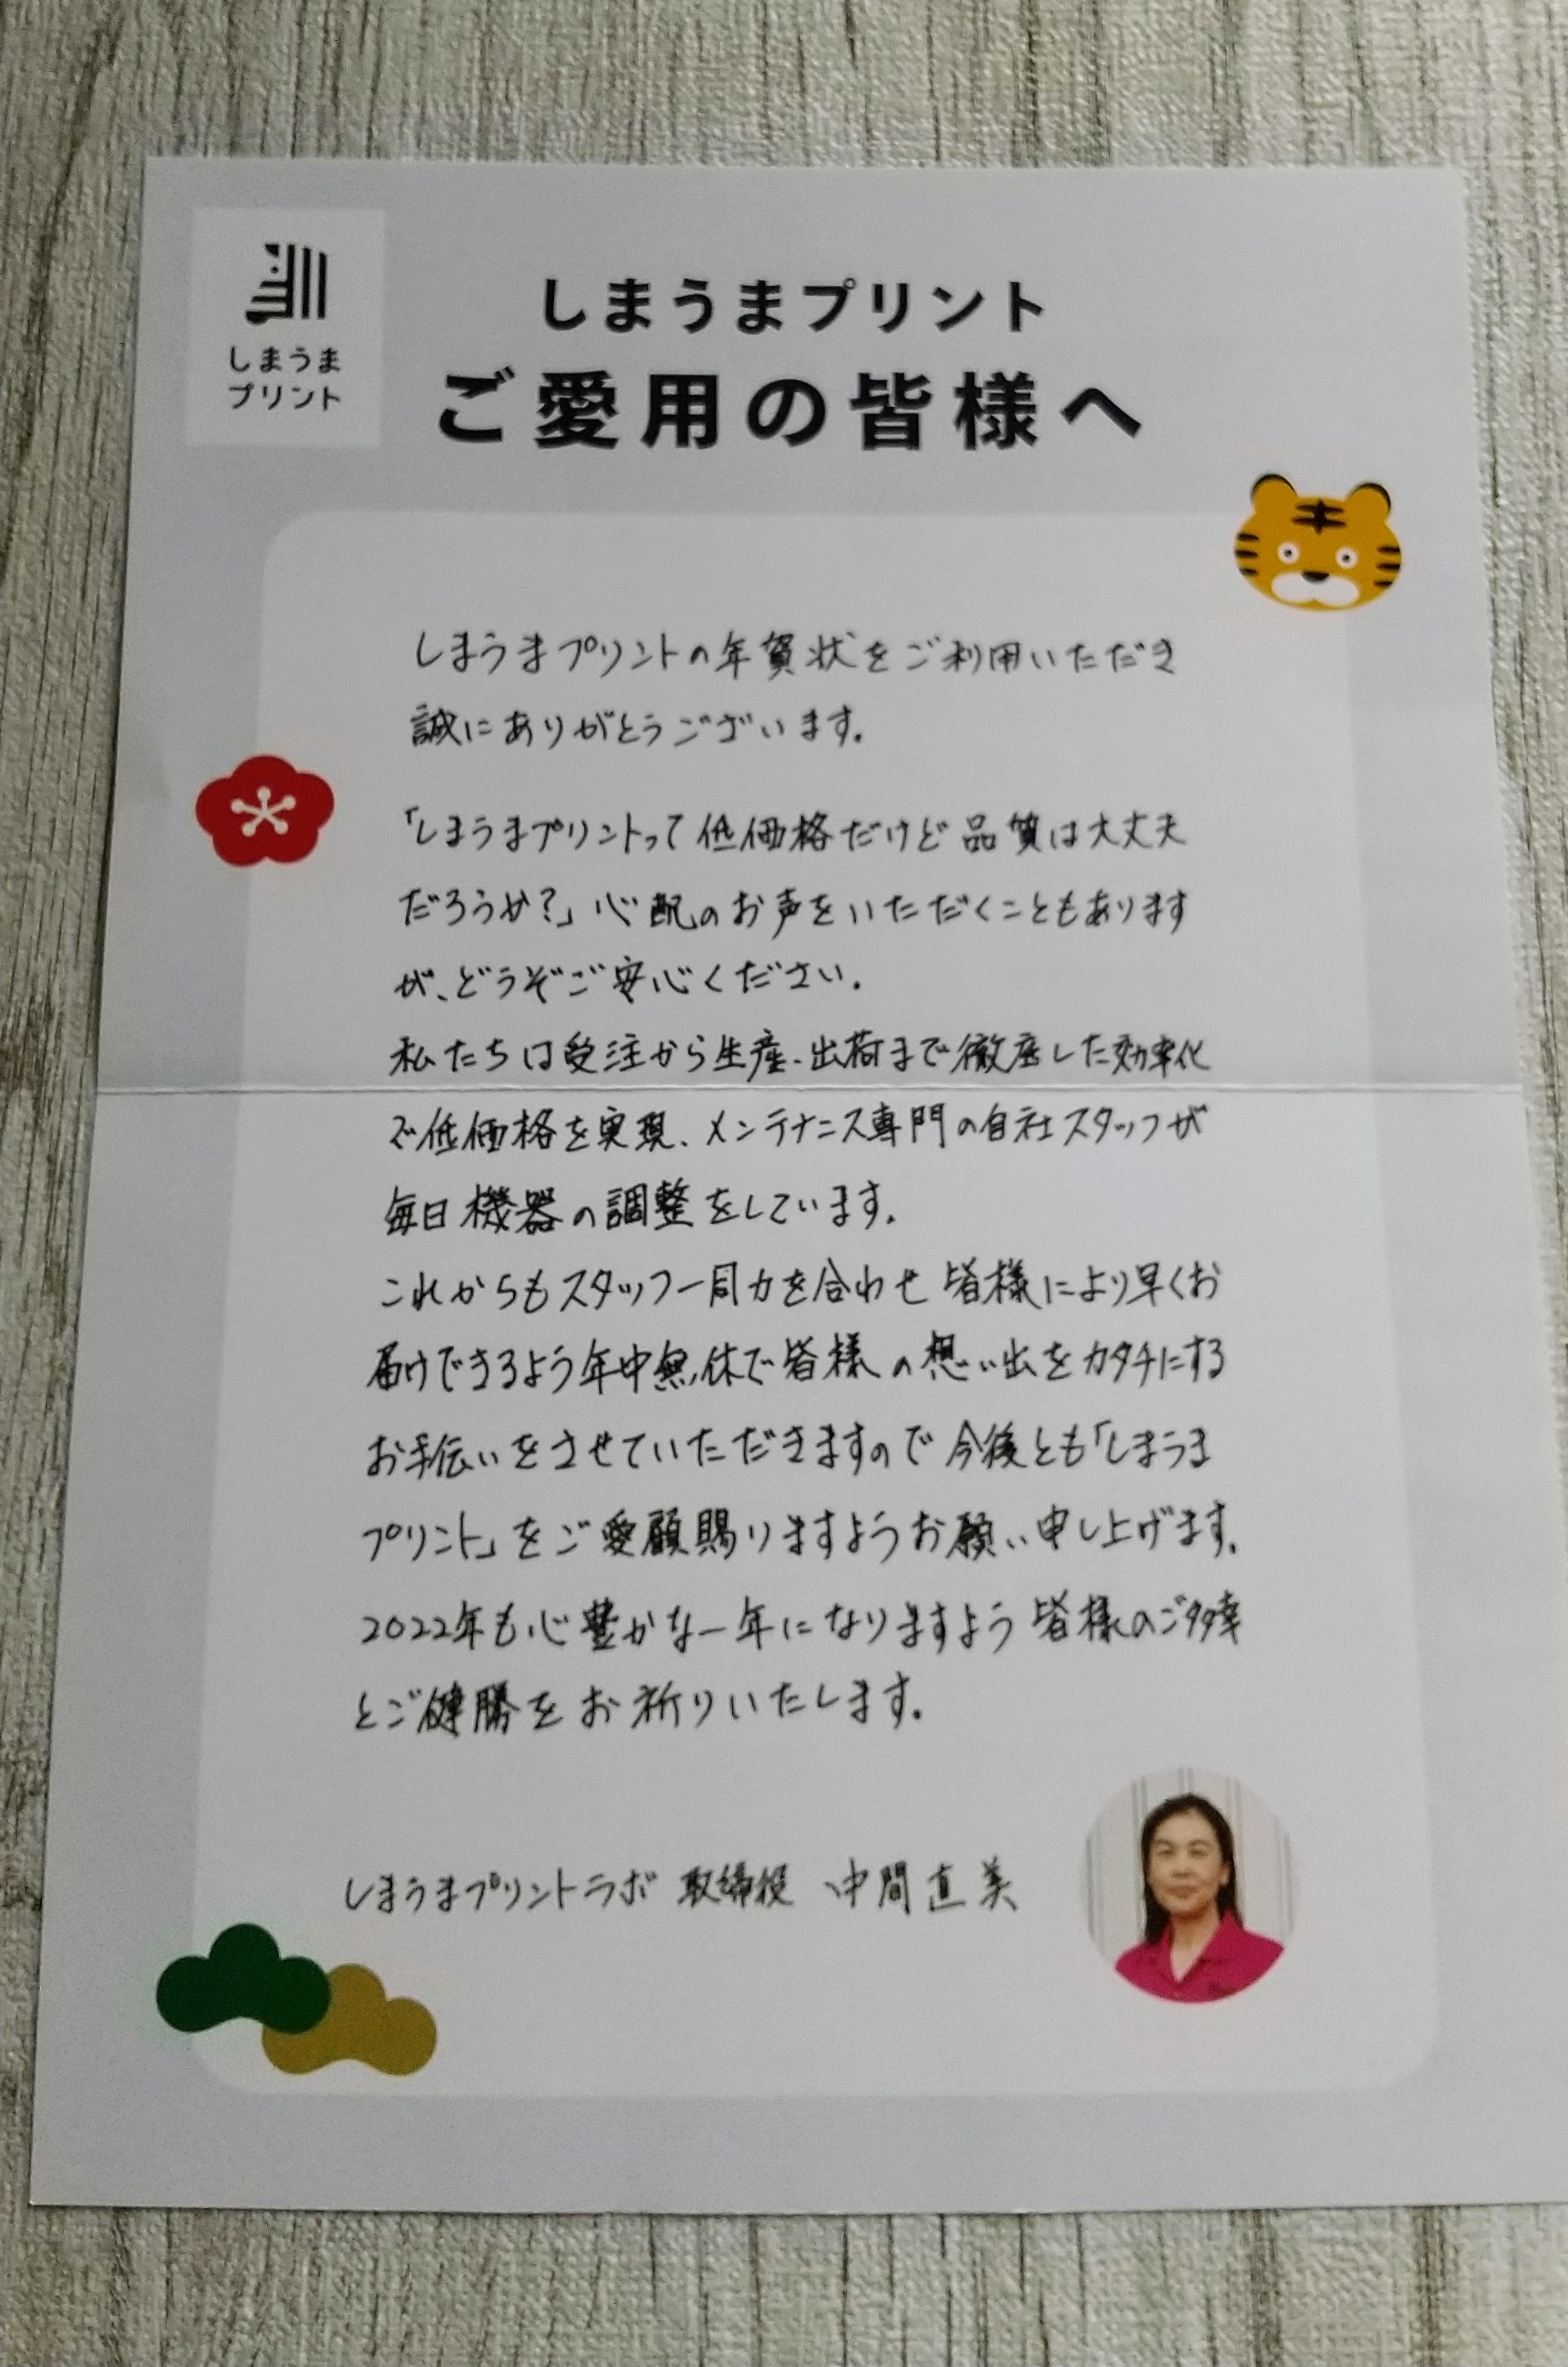 しまうま
プリント
しまうまプリント
ご愛用の皆様へ
しまうまプリントの年賀状をご利用いただき
誠にありがとうございます。
「しまうまプリントって低価格だけど品質は大丈夫
だろうか?」心配のお声をいただくこともあります
が、どうぞご安心ください。
私たちは受注から生産、出荷まで徹底した効率化
で低価格を実現、メンテナンス専門の自社スタッフが
毎日機器の調整をしています。
これからもスタッフ一同力を合わせ皆様により早くお
届けできるよう年中無休で皆様の想い出をカタチにする
お手伝いをさせていただきますので今後とも「しまうま
プリント」をご愛顧賜りますようお願い申し上げます。
2022年も心豊かな一年になりますよう皆様のご多幸
とご健勝をお祈りいたします。
しまうまプリントラボ 取締役 中間直美